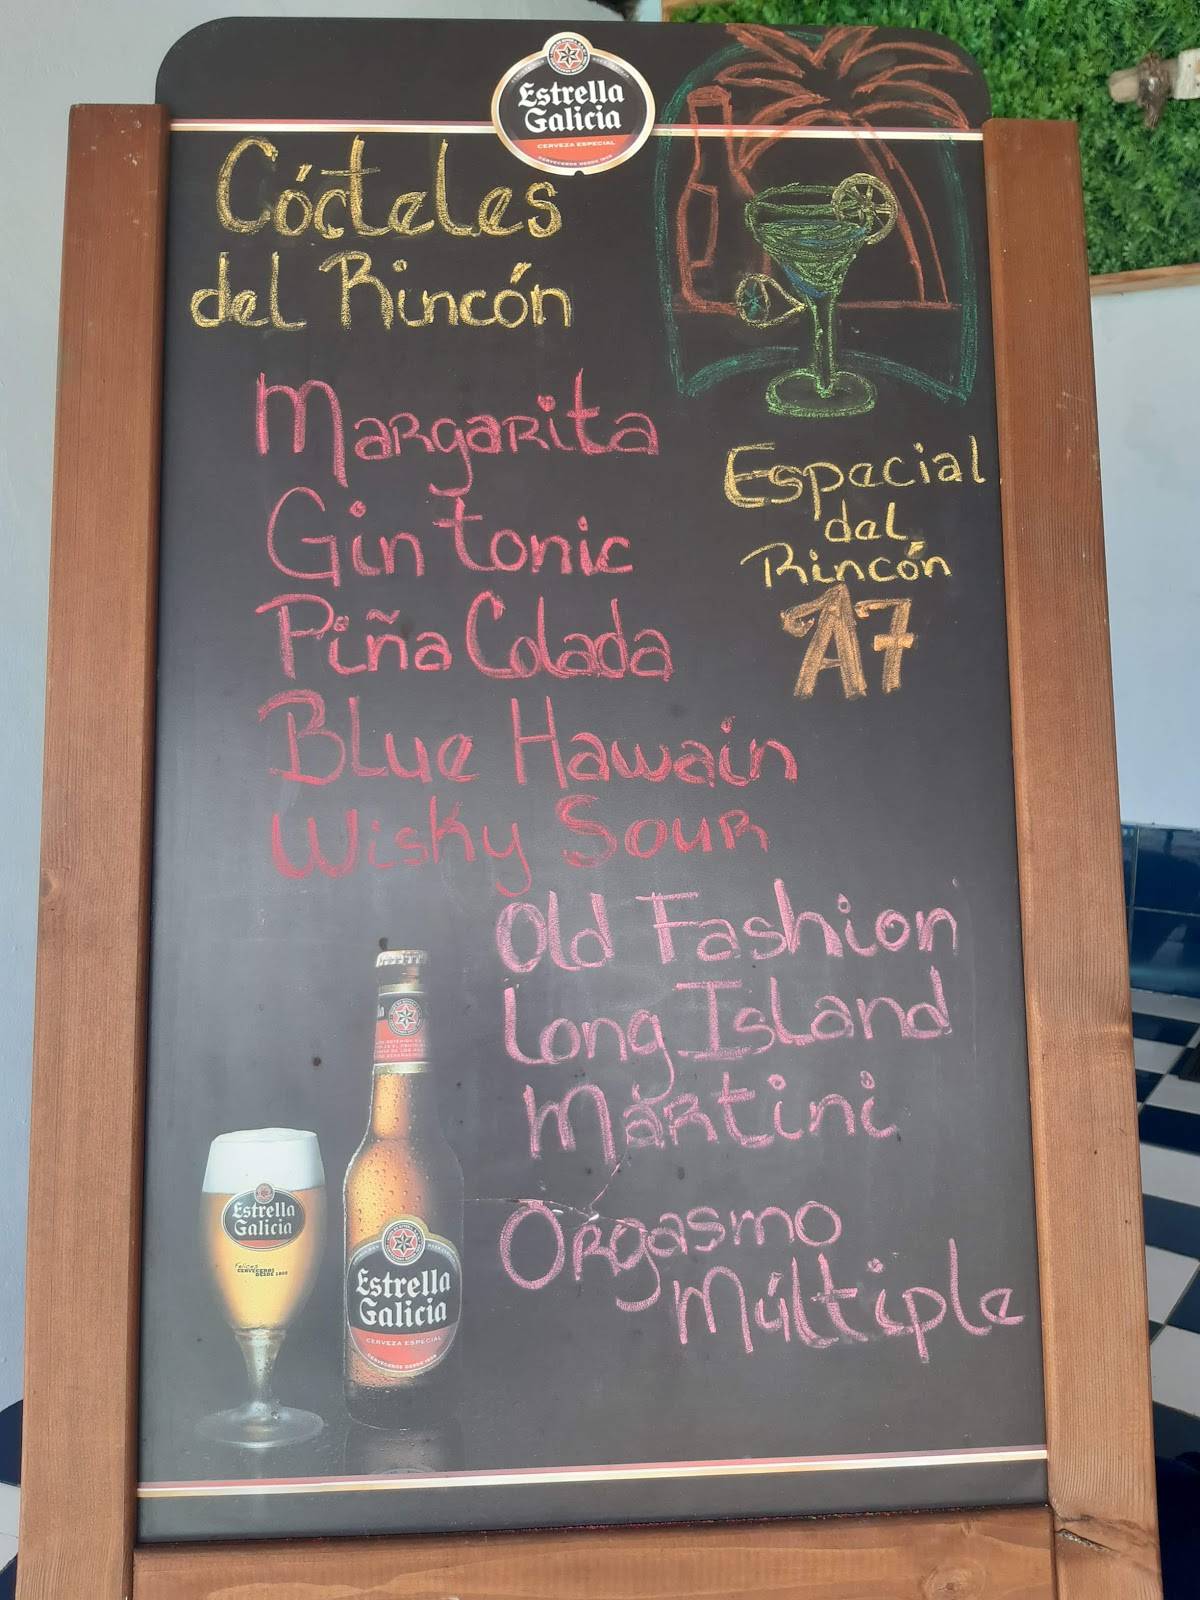 Estrella
Galicia
CERVEZA ESPECIAL
CERVECEROS DESDE 1906
Cócteles
del Rincón
Margarita
Gin tonic
Piña Colada
Blue Hawain
Wisky Sour
Especial
del
Rincón
A7
Old Fashion
Long Island
Martini
Orgasmo
Múltiple
Estrella
Galicia
felices
CERVECEROS
DESDE 1906
Estrella
Galicia
CERVEZA ESPECIAL
CERVECEROS DESDE 1906